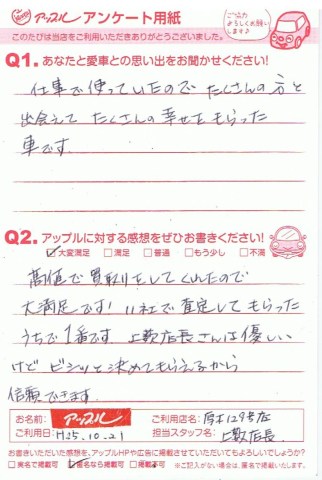 アップル アンケート用紙
ご協力
よろしくお願い
します♪
このたびは当店をご利用いただきありがとうございました。
Q1. あなたと愛車との思い出をお聞かせください!
仕事で使っていたので たくさんの方と
出会えて たくさんの幸せをもらった
車です
Q2. アップルに対する感想をぜひお書きください!
☑大変満足 □満足 □普通 □もう少し □不満
高値で買取りをしてくれたので
大満足です! 11社で査定してもらった
うちで1番です 上敷店長さんは優しい
けど ビシッと決めてもらえるから
信頼できます
お名前: アップル
ご利用店名: 厚木129号店
ご利用日: H25.10.21
担当スタッフ名: 上敷店長
お書きいただいた感想を、アップルHPや広告に掲載させていただいてもよろしいでしょうか?
□実名で掲載可 ☑匿名なら掲載可 □掲載不可 ※ご記入がない場合は、匿名で掲載いたします。